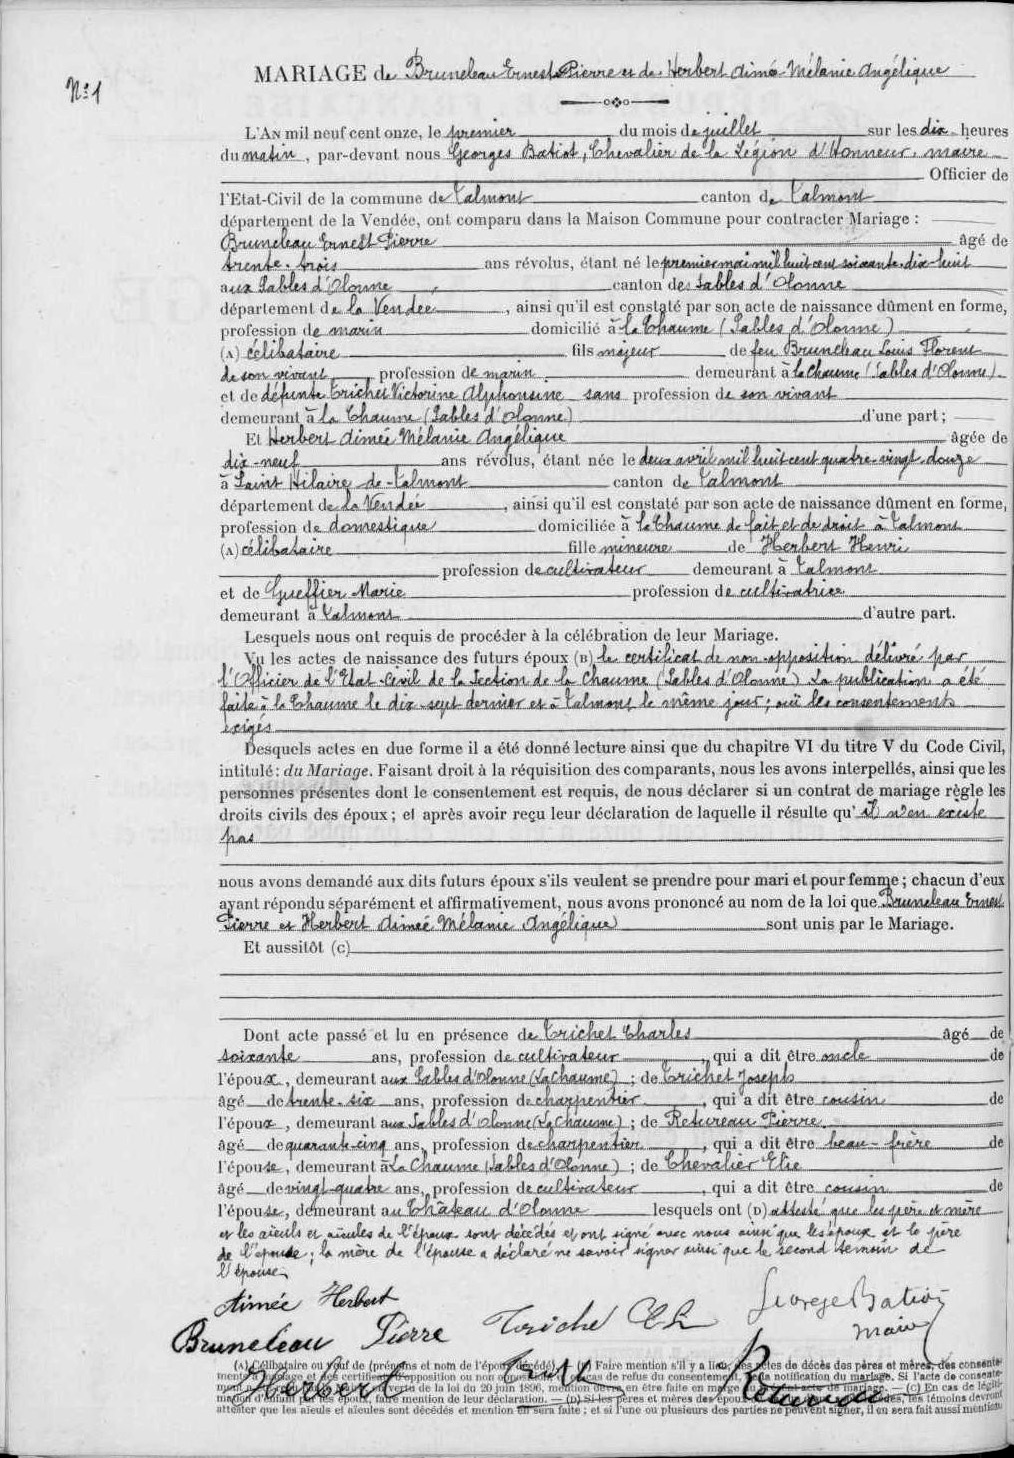 Nº 1
MARIAGE de Bruneleau Ernest Pierre et de Herbert Aimée Mélanie Angélique
L'AN mil neuf cent onze, le premier du mois de juillet sur les dix heures
du matin, par-devant nous Georges Batiot, Chevalier de la Légion d'Honneur, maire
Officier de
l'Etat-Civil de la commune de Talmont canton de Talmont
département de la Vendée, ont comparu dans la Maison Commune pour contracter Mariage :
Bruneleau Ernest Pierre âgé de
trente-trois ans révolus, étant né le premier mai mil huit cent soixante-dix-huit
aux Sables d'Olonne canton des Sables d'Olonne
département de la Vendée, ainsi qu'il est constaté par son acte de naissance dûment en forme,
profession de marin domicilié à la Chaume (Sables d'Olonne)
(A) célibataire fils majeur de feu Bruneleau Louis Florent
de son vivant profession de marin demeurant à la Chaume (Sables d'Olonne)
et de défunte Trichet Victorine Alphonsine sans profession de son vivant
demeurant à la Chaume (Sables d'Olonne) d'une part ;
Et Herbert Aimée Mélanie Angélique âgée de
dix-neuf ans révolus, étant née le deux avril mil huit cent quatre-vingt-douze
à Saint Hilaire de-Talmont canton de Talmont
département de la Vendée, ainsi qu'il est constaté par son acte de naissance dûment en forme,
profession de domestique domiciliée à la Chaume de fait et de droit à Talmont
(A) célibataire fille mineure de Herbert Henri
profession de cultivateur demeurant à Talmont
et de Gueffier Marie profession de cultivatrice
demeurant à Talmont d'autre part.
Lesquels nous ont requis de procéder à la célébration de leur Mariage.
Vu les actes de naissance des futurs époux (B) le certificat de non-opposition délivré par
l'Officier de l'Etat-Civil de la Section de la Chaume (Sables d'Olonne) La publication a été
faite à la Chaume le dix-sept dernier et à Talmont le même jour ; ouï les consentements
exigés
Desquels actes en due forme il a été donné lecture ainsi que du chapitre VI du titre V du Code Civil,
intitulé : du Mariage. Faisant droit à la réquisition des comparants, nous les avons interpellés, ainsi que les
personnes présentes dont le consentement est requis, de nous déclarer si un contrat de mariage règle les
droits civils des époux ; et après avoir reçu leur déclaration de laquelle il résulte qu'il n'en existe
pas
nous avons demandé aux dits futurs époux s'ils veulent se prendre pour mari et pour femme ; chacun d'eux
ayant répondu séparément et affirmativement, nous avons prononcé au nom de la loi que Bruneleau Ernest
Pierre et Herbert Aimée Mélanie Angélique sont unis par le Mariage.
Et aussitôt (C)
Dont acte passé et lu en présence de Trichet Charles âgé de
soixante ans, profession de cultivateur, qui a dit être oncle de
l'époux, demeurant aux Sables d'Olonne (La Chaume) ; de Trichet Joseph
âgé de trente-six ans, profession de charpentier, qui a dit être cousin de
l'époux, demeurant aux Sables d'Olonne (La Chaume) ; de Retureau Pierre
âgé de quarante-cinq ans, profession de charpentier, qui a dit être beau-frère de
l'épouse, demeurant à La Chaume (Sables d'Olonne) ; de Chevalier Elie
âgé de vingt-quatre ans, profession de cultivateur, qui a dit être cousin de
l'épouse, demeurant au Château d'Olonne lesquels ont (D) attesté que les père et mère
et les aïeuls et aïeules de l'époux sont décédés et ont signé avec nous ainsi que les époux et le père
de l'épouse ; la mère de l'épouse a déclaré ne savoir signer ainsi que le second témoin de
l'épouse
Aimée Herbert
Georges Batiot
maire
Bruneleau Pierre Trichet Ch
(A) Célibataire ou veuf de (prénoms et nom de l'époux décédé). — (B) Faire mention s'il y a lieu, des actes de décès des pères et mères, des consente-
Herbert
Retureau
attester que les aïeuls et aïeules sont décédés et mention en sera faite ; et si l'une ou plusieurs des parties ne peuvent signer, il en sera fait aussi mention.